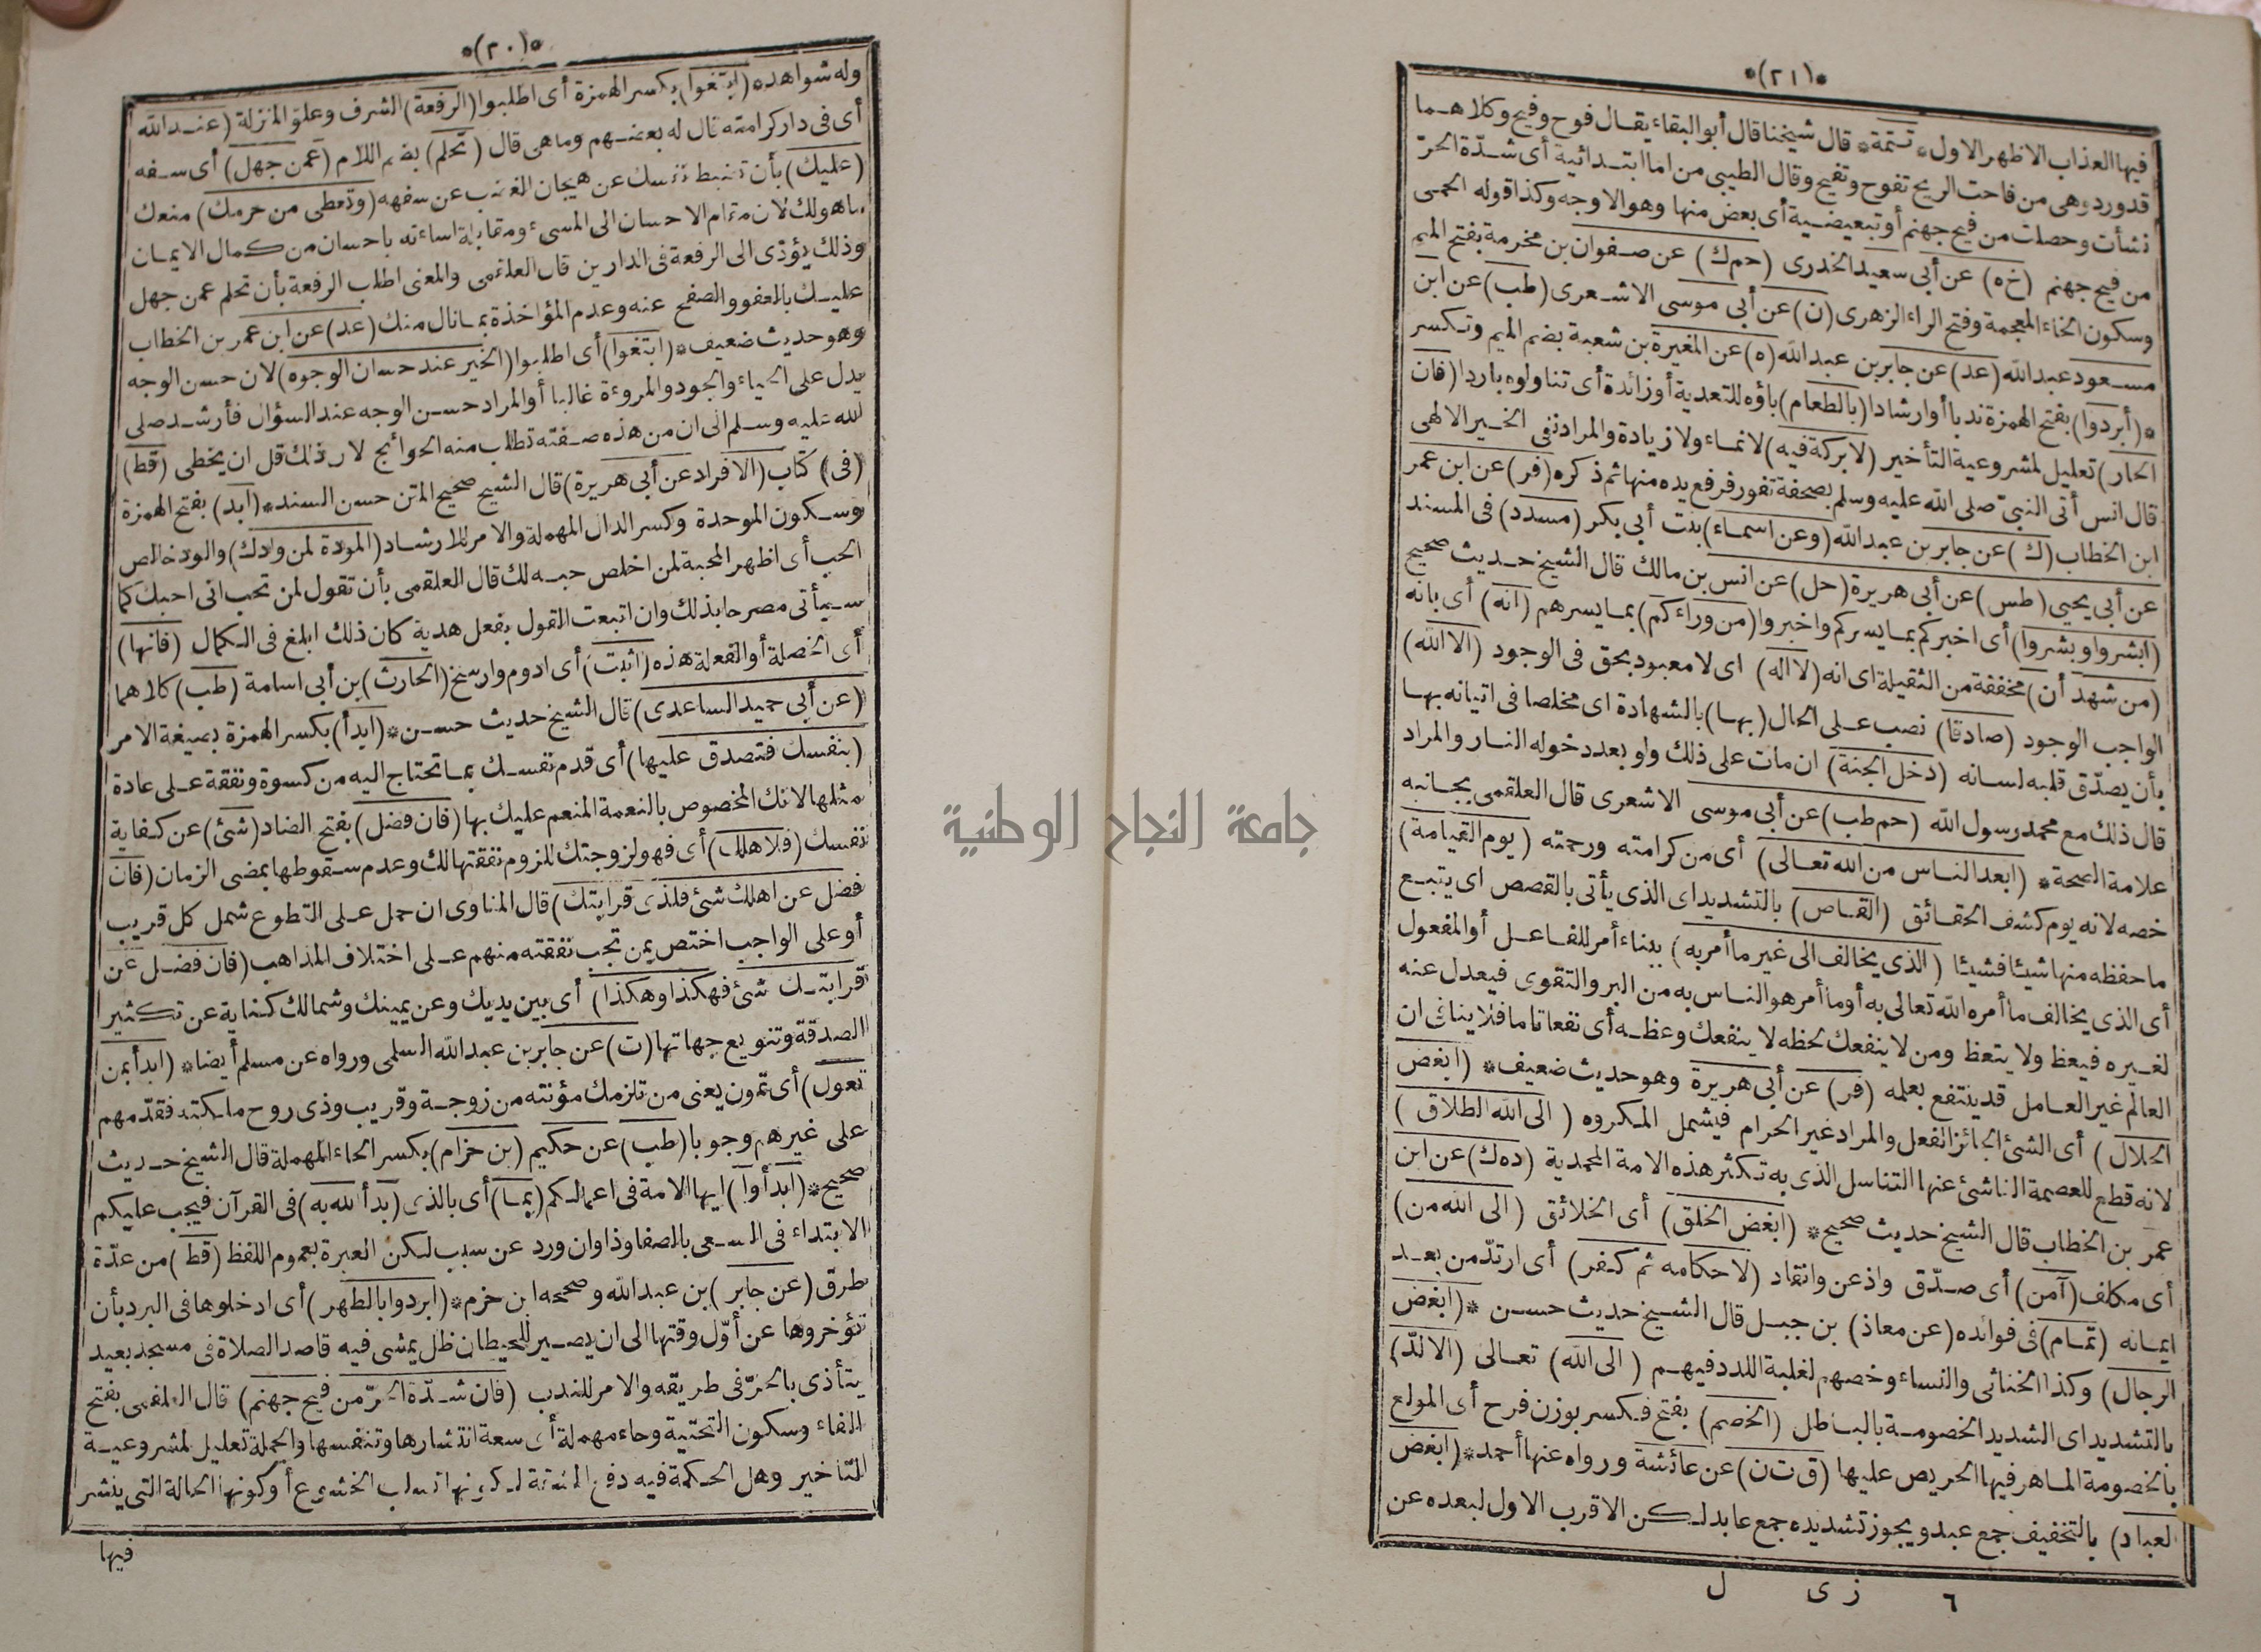 *(٢٠)*
وله شواهد* (ابتغوا) بكسر الهمزة أى اطلبوا (الرفعة) الشرف وعلو المنزلة (عند الله
أى فى دار كرامته قال له بعضهم وما هى قال (تحلم) بضم اللام (عمن جهل) أى سفه
(عليك) بأن تضبط نفسك عن هيجان الغضب عن سفهه (وتعطى من حرمك) منعك
ما هو لك لان مقام الاحسان الى المسىء ومقابلة اساءته باحسان من كمال الايمان
وذلك يؤدّى الى الرفعة فى الدارين قال العلقمى والمعنى اطلب الرفعة بأن تحلم عمن جهل
عليك بالعفو والصفح عنه وعدم المؤاخذة بما نال منك (عد) عن ابن عمر بن الخطاب
وهو حديث ضعيف* (ابتغوا) أى اطلبوا (الخير عند حسان الوجوه) لان حسن الوجه
يدل على الحياء والجود والمروءة غالبا أو المراد حسن الوجه عند السؤال فأرشد صلى
الله عليه وسلم الى ان من هذه صفته تطلب منه الحوائج لان ذلك قل ان يخطى (قط)
(فى) كتاب (الافراد عن أبى هريرة) قال الشيخ صحيح المتن حسن السند* (أبد) بفتح الهمزة
وسكون الموحدة وكسر الدال المهملة والامر للارشاد (المودة لمن وادك) والود خالص
الحب أى اظهر المحبة لمن اخلص حبه لك قال العلقمى بأن تقول لمن تحب انى احبك كما
سيأتى مصرحا بذلك وان اتبعت القول بفعل هدية كان ذلك ابلغ فى الكمال (فانها)
أى الخصلة أو الفعلة هذه (اثبت) أى ادوم وارسخ (الحارث) بن أبى اسامة (طب) كلاهما
(عن أبى حميد الساعدى) قال الشيخ حديث حسن* (ابدأ) بكسر الهمزة بصيغة الامر
(بنفسك فتصدق عليها) أى قدم نفسك بما تحتاج اليه من كسوة ونفقة على عادة
مثلها لانك المخصوص بالنعمة المنعم عليك بها (فان فضل) بفتح الضاد (شئ) عن كفاية
نفسك (فلاهلك) أى فهو لزوجتك للزوم نفقتها لك وعدم سقوطها بمضى الزمان (فان
فضل عن اهلك شئ فلذى قرابتك) قال المناوى ان حمل على التطوع شمل كل قريب
أو على الواجب اختص بمن تجب نفقته منهم على اختلاف المذاهب (فان فضل عن
قرابتك شئ فهكذا وهكذا) أى بين يديك وعن يمينك وشمالك كناية عن تكثير
الصدقة وتنويع جهاتها (ت) عن جابر بن عبد الله السلمى ورواه عن مسلم أيضا* (ابدأ بمن
تعول) أى تمون يعنى من تلزمك مؤنته من زوجة وقريب وذى روح ملكته فقدّمهم
على غيرهم وجوبا (طب) عن حكيم (بن حزام) بكسر الحاء المهملة قال الشيخ حديث
صحيح* (ابدأوا) ايها الامة فى اعمالكم (بما) أى بالذى (بدأ الله به) فى القرآن فيجب عليكم
الابتداء فى السعى بالصفا وذا وان ورد عن سبب لكن العبرة بعموم اللفظ (قط) من عدّة
طرق (عن جابر) بن عبد الله وصححه ابن حزم* (ابردوا بالظهر) أى ادخلوها فى البرد بأن
تؤخروها عن أوّل وقتها الى ان يصير للحيطان ظل يمشى فيه قاصد الصلاة فى مسجد بعيد
يتأذى بالحرّ فى طريقه والامر للندب (فان شدّة الحرّ من فيح جهنم) قال العلقمى بفتح
الفاء وسكون التحتية وحاء مهملة أى سعة انتشارها وتنفسها والجملة تعليل لمشروعية
التأخير وهل الحكمة فيه دفع المشقة لكونها تسلب الخشوع أو كونها الحالة التى ينشر
فيها
*(٢١)*
فيها العذاب الاظهر الاول* تتمة* قال شيخنا قال أبو البقاء يقال فوح وفيح وكلاهما
قد ورد وهى من فاحت الريح تفوح وتفيح وقال الطيبى من اما ابتدائية أى شدّة الحرّ
نشأت وحصلت من فيح جهنم أو تبعيضية أى بعض منها وهو الاوجه وكذا قوله الحمى
من فيح جهنم (خ ه) عن أبى سعيد الخدرى (حم ك) عن صفوان بن مخرمة بفتح الميم
وسكون الخاء المعجمة وفتح الراء الزهرى (ن) عن أبى موسى الاشعرى (طب) عن ابن
مسعود عبد الله (عد) عن جابر بن عبد الله (ه) عن المغيرة بن شعبة بضم الميم وتكسر
*(أبردوا) بفتح الهمزة ندبا أو ارشادا (بالطعام) باؤه للتعدية أو زائدة أى تناولوه باردا (فان
الحار) تعليل لمشروعية التأخير (لا بركة فيه) لا نماء ولا زيادة والمراد نفى الخير الالهى
قال انس أتى النبىّ صلى الله عليه وسلم بصحفة تفور فرفع يده منها ثم ذكره (فر) عن ابن عمر
ابن الخطاب (ك) عن جابر بن عبد الله (وعن اسماء) بنت أبى بكر (مسدد) فى المسند
عن أبى يحيى (طس) عن أبى هريرة (حل) عن انس بن مالك قال الشيخ حديث صحيح
(ابشروا وبشروا) أى اخبركم بما يسركم واخبروا (من وراءكم) بما يسرهم (انه) أى بانه
(من شهد أن) مخففة من الثقيلة اى انه (لا اله) اى لا معبود بحق فى الوجود (الا الله)
الواجب الوجود (صادقا) نصب على الحال (بها) بالشهادة اى مخلصا فى اتيانه بها
بأن يصدّق قلبه لسانه (دخل الجنة) ان مات على ذلك ولو بعد دخوله النار والمراد
قال ذلك مع محمد رسول الله (حم طب) عن أبى موسى الاشعرى قال العلقمى بجانبه
علامة الصحة* (ابعد الناس من الله تعالى) أى من كرامته ورحمته (يوم القيامة)
خصه لانه يوم كشف الحقائق (القاص) بالتشديد اى الذى يأتى بالقصص اى يتبع
ما حفظه منها شيئا فشيئا (الذى يخالف الى غير ما أمر به) ببناء أمر للفاعل أو المفعول
أى الذى يخالف ما أمره الله تعالى به أو ما أمر هو الناس به من البر والتقوى فيعدل عنه
لغيره فيعظ ولا يتعظ ومن لا ينفعك لحظه لا ينفعك وعظه أى نفعا تاما فلا ينافى ان
العالم غير العامل قد ينتفع بعلمه (فر) عن أبى هريرة وهو حديث ضعيف* (ابغض
الحلال) أى الشئ الجائز الفعل والمراد غير الحرام فيشمل المكروه (الى الله الطلاق)
لانه قطع للعصمة الناشئ عنها التناسل الذى به تكثر هذه الامة المحمدية (د ه ك) عن ابن
عمر بن الخطاب قال الشيخ حديث صحيح* (ابغض الخلق) أى الخلائق (الى الله من)
أى مكلف (آمن) أى صدّق واذعن وانقاد (لاحكامه ثم كفر) أى ارتدّ من بعد
ايمانه (تمام) فى فوائده (عن معاذ) بن جبل قال الشيخ حديث حسن *(ابغض
الرجال) وكذا الخناثى والنساء وخصهم لغلبة اللدد فيهم (الى الله) تعالى (الالدّ)
بالتشديد اى الشديد الخصومة بالباطل (الخصم) بفتح فكسر بوزن فرح أى المولع
بالخصومة الماهر فيها الحريص عليها (ق ت ن) عن عائشة ورواه عنها أحمد* (ابغض
العباد) بالتخفيف جمع عبد ويجوز تشديده جمع عابد لكن الاقرب الاول لبعده عن
٦ زى ل
جامعة النجاح الوطنية